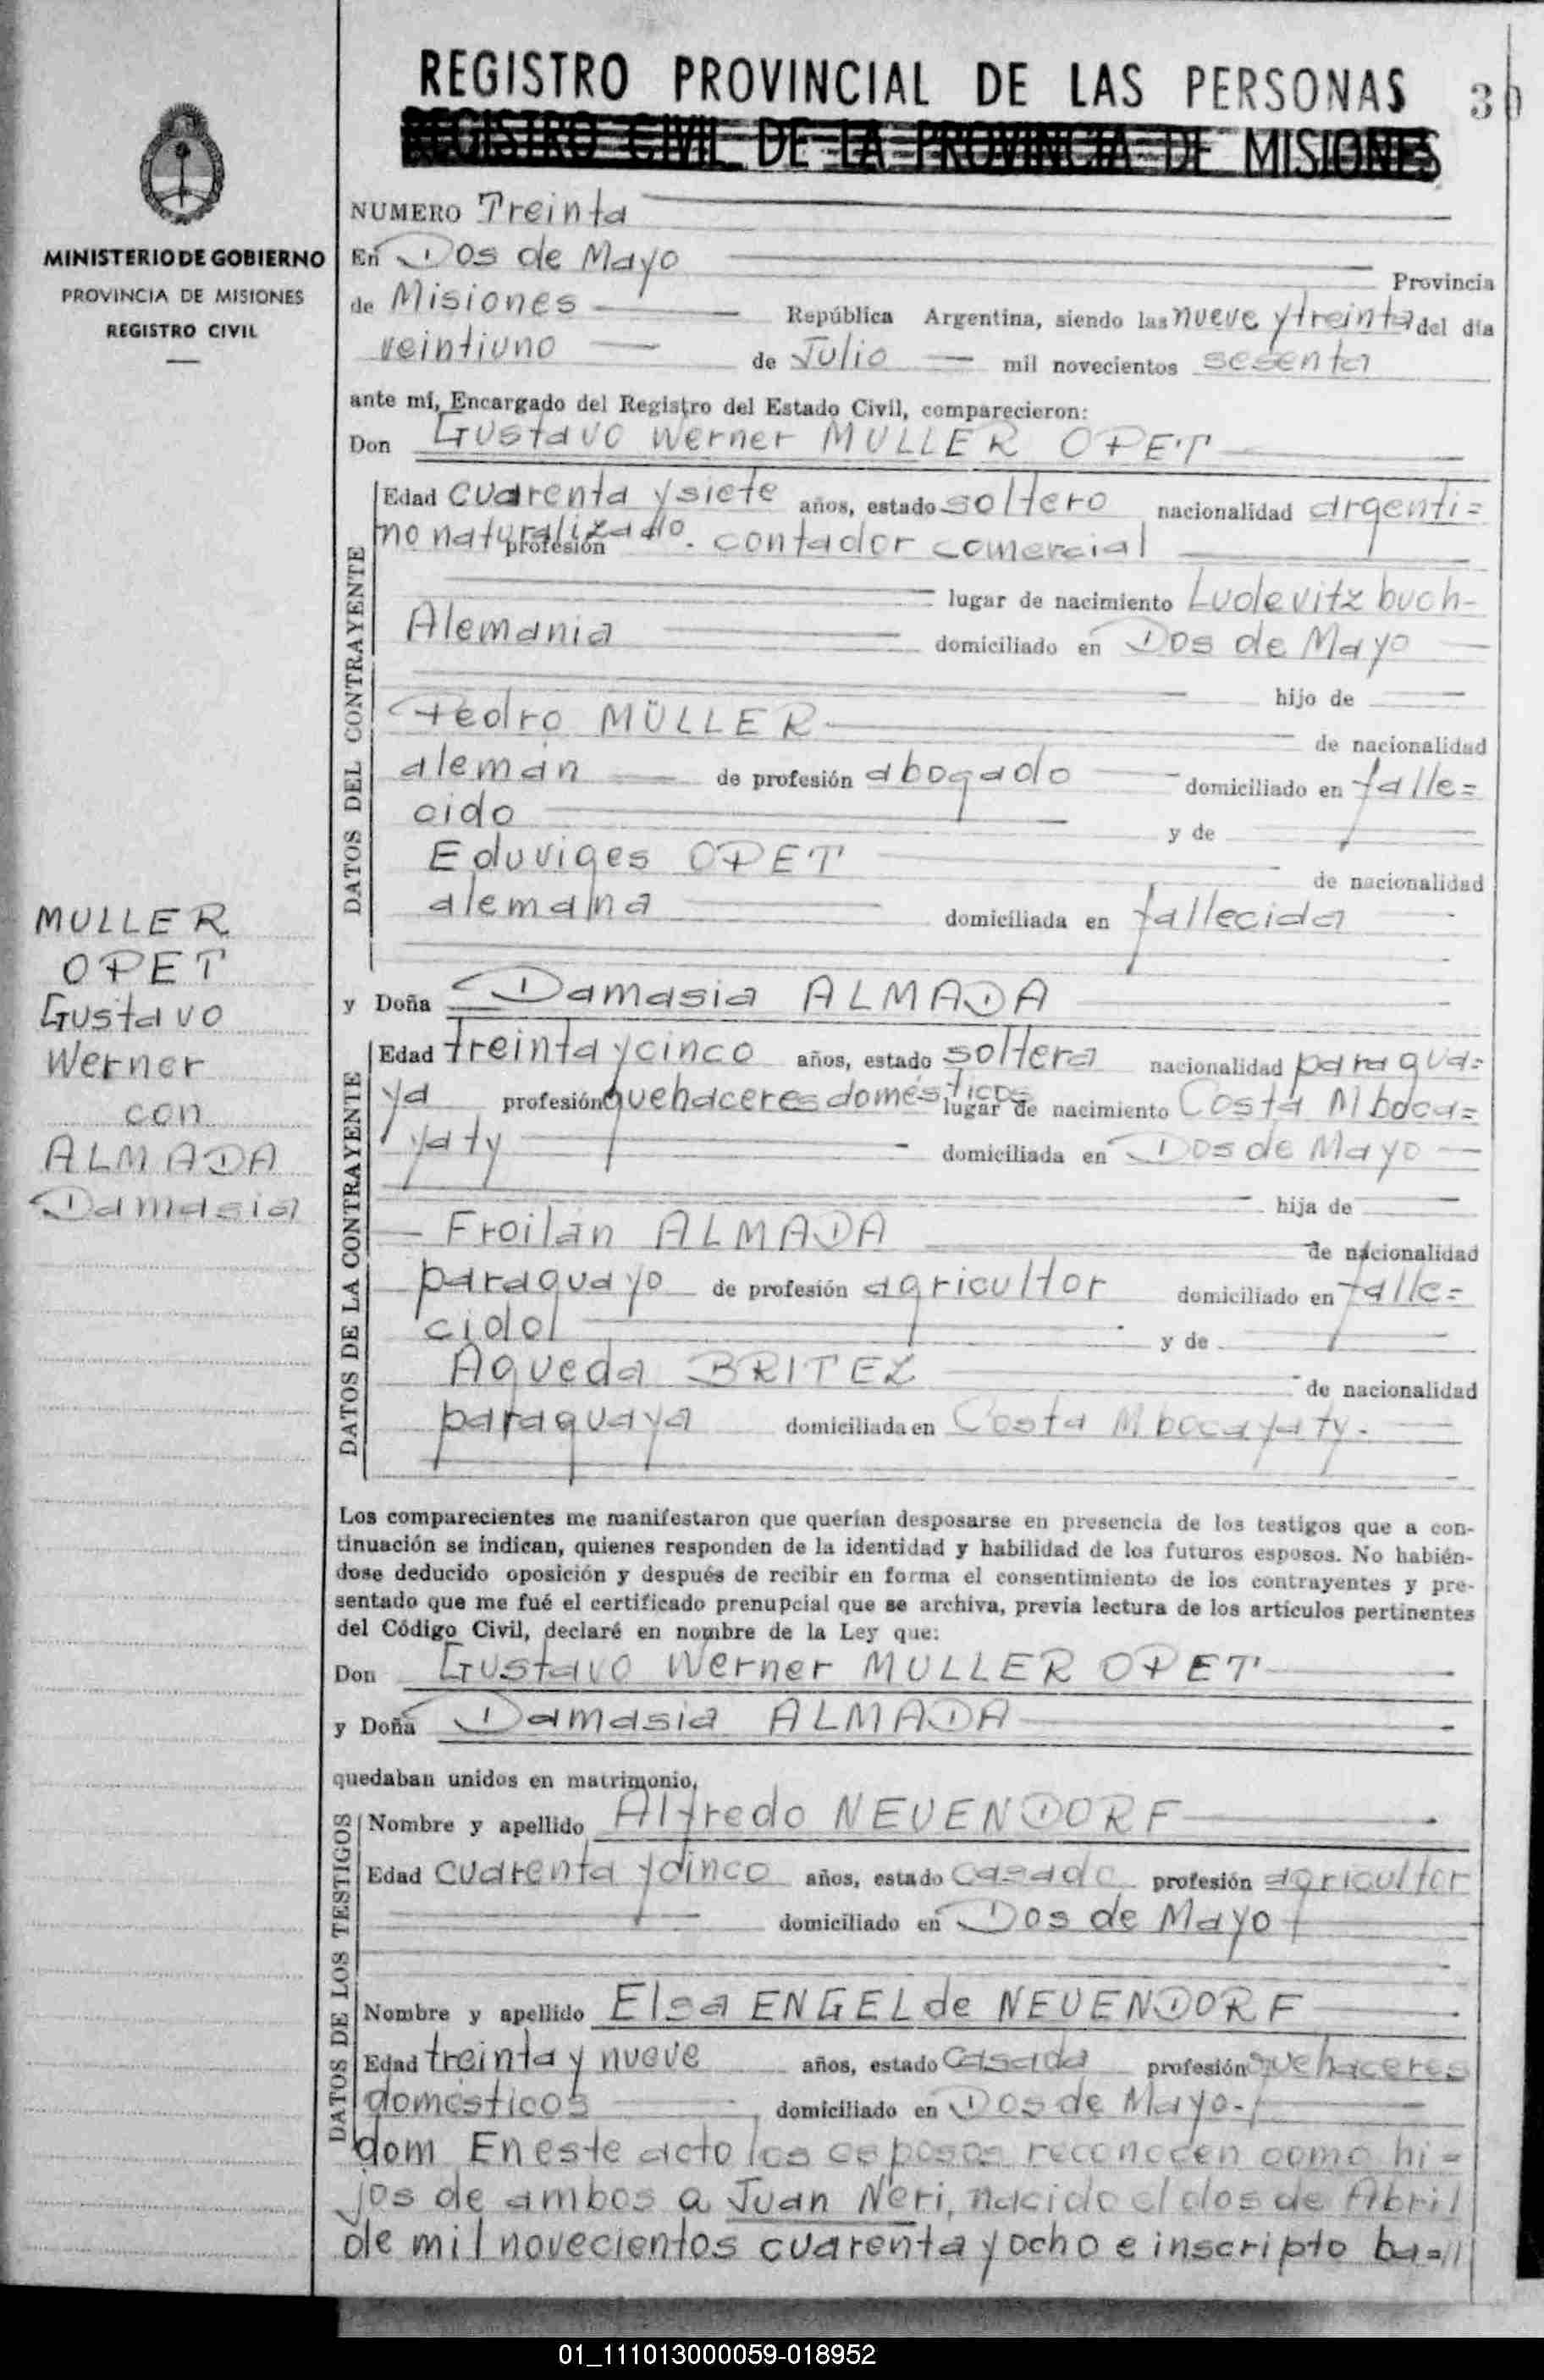 REGISTRO PROVINCIAL DE LAS PERSONAS 30
REGISTRO CIVIL DE LA PROVINCIA DE MISIONES
MINISTERIO DE GOBIERNO
PROVINCIA DE MISIONES
REGISTRO CIVIL
MULLER
OPET
Gustavo
Werner
con
ALMADA
Damasia
NUMERO Treinta
En Dos de Mayo
Provincia
de Misiones República Argentina, siendo las nueve y treinta del día
veintiuno de Julio mil novecientos sesenta
ante mí, Encargado del Registro del Estado Civil, comparecieron:
Don Gustavo Werner MULLER OPET
DATOS DEL CONTRAYENTE
Edad cuarenta y siete años, estado soltero nacionalidad argenti=
no naturalizado. profesión contador comercial
lugar de nacimiento Ludevitzbuch-
Alemania domiciliado en Dos de Mayo
hijo de
Pedro MÜLLER
de nacionalidad
alemán de profesión abogado domiciliado en falle=
cido y de
Eduviges OPET
de nacionalidad
alemana domiciliada en fallecida
y Doña Damasia ALMADA
DATOS DE LA CONTRAYENTE
Edad treinta y cinco años, estado soltera nacionalidad paragua=
ya profesión quehaceres domésticos lugar de nacimiento Costa Mboca=
yaty domiciliada en Dos de Mayo
hija de
Froilán ALMADA
de nacionalidad
paraguayo de profesión agricultor domiciliado en falle=
cido y de
Agueda BRITEZ
de nacionalidad
paraguaya domiciliada en Costa Mbocayaty.
Los comparecientes me manifestaron que querían desposarse en presencia de los testigos que a con-
tinuación se indican, quienes responden de la identidad y habilidad de los futuros esposos. No habién-
dose deducido oposición y después de recibir en forma el consentimiento de los contrayentes y pre-
sentado que me fué el certificado prenupcial que se archiva, previa lectura de los artículos pertinentes
del Código Civil, declaré en nombre de la Ley que:
Don Gustavo Werner MULLER OPET
y Doña Damasia ALMADA
quedaban unidos en matrimonio.
DATOS DE LOS TESTIGOS
Nombre y apellido Alfredo NEUENDORF
Edad cuarenta y cinco años, estado casado profesión agricultor
domiciliado en Dos de Mayo
Nombre y apellido Elsa ENGEL de NEUENDORF
Edad treinta y nueve años, estado casada profesión quehaceres
domésticos domiciliado en Dos de Mayo.
dom En este acto los esposos reconocen como hi=
jos de ambos a Juan Neri, nacido el dos de Abril
de mil novecientos cuarenta y ocho e inscripto ba=//
01_111013000059-018952